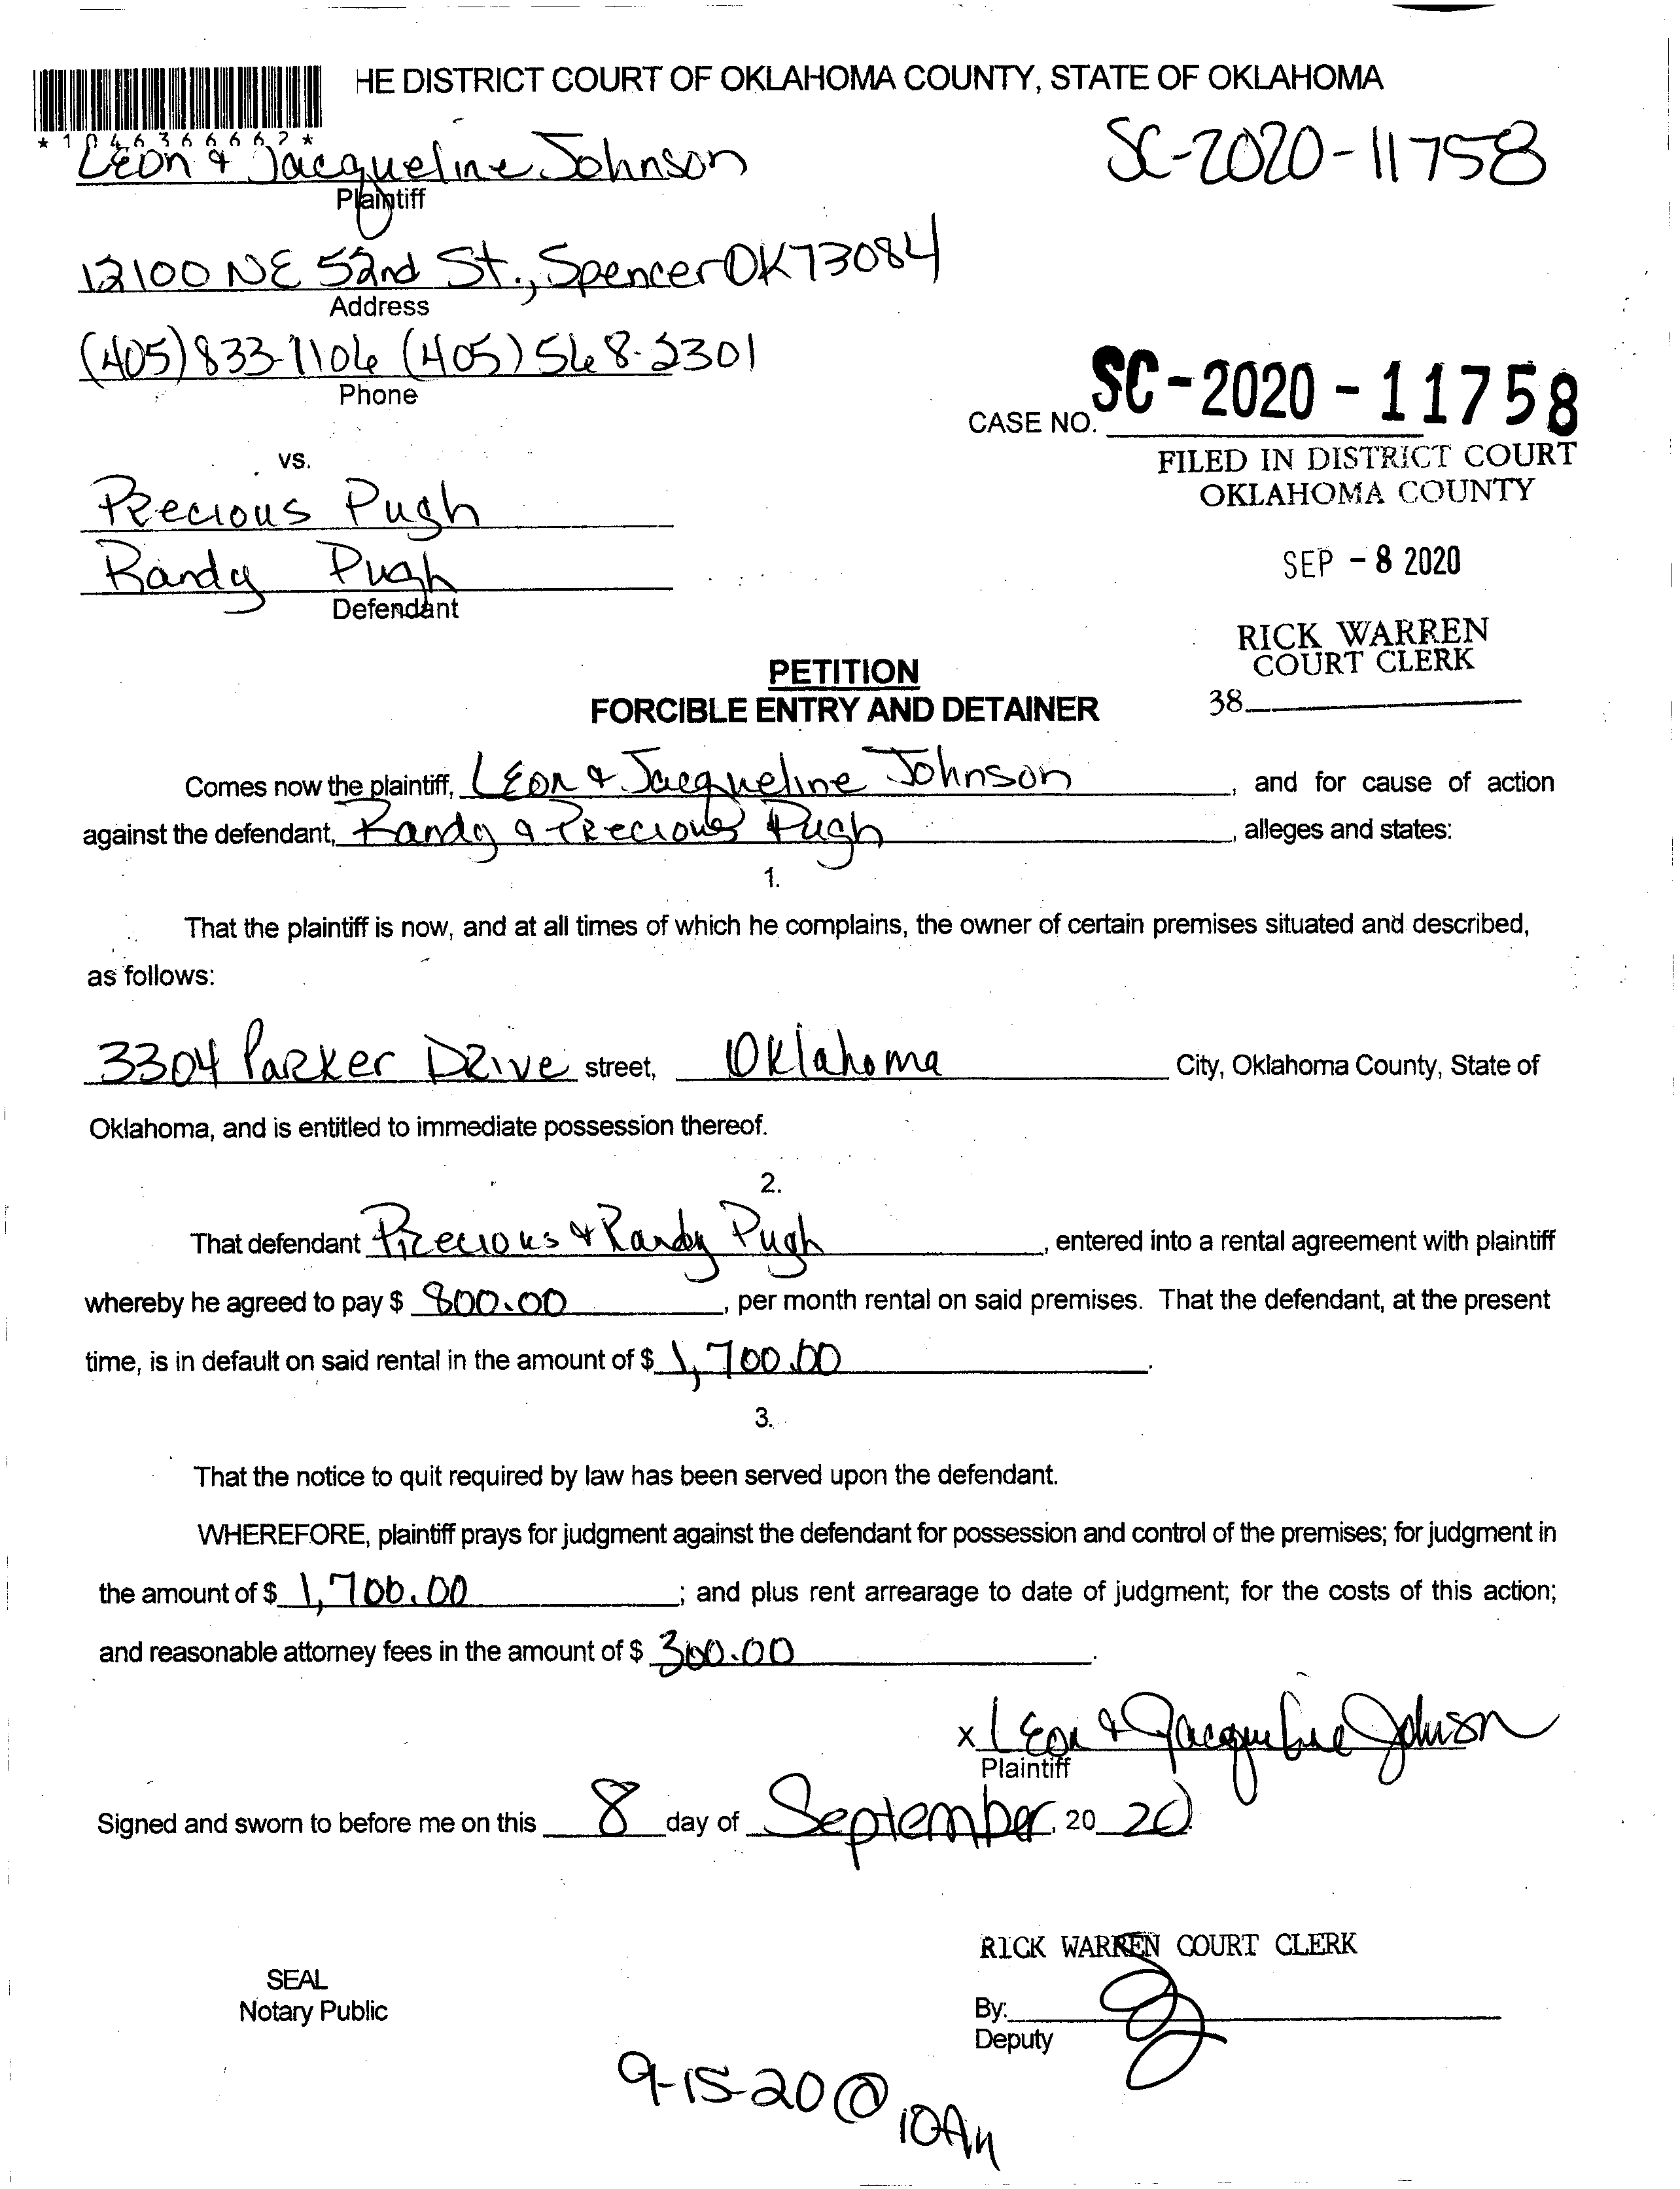 HE DISTRICT COURT OF OKLAHOMA COUNTY, STATE OF OKLAHOMA
* 1 0 4 6 3 6 6 6 6 2 *
Leon & Jacqueline Johnson
SC-2020-11758
Plaintiff
12100 NE 52nd St., Spencer OK 73084
Address
(405) 833-1106 (405) 568-2301
Phone
CASE NO. SC-2020-11758
FILED IN DISTRICT COURT
OKLAHOMA COUNTY
vs.
Precious Pugh
SEP - 8 2020
Randy Pugh
Defendant
RICK WARREN
COURT CLERK
38
PETITION
FORCIBLE ENTRY AND DETAINER
Comes now the plaintiff, Leon & Jacqueline Johnson, and for cause of action
against the defendant, Randy & Precious Pugh, alleges and states:
1.
That the plaintiff is now, and at all times of which he complains, the owner of certain premises situated and described,
as follows:
3304 Parker Drive street, Oklahoma City, Oklahoma County, State of
Oklahoma, and is entitled to immediate possession thereof.
2.
That defendant Precious & Randy Pugh, entered into a rental agreement with plaintiff
whereby he agreed to pay $ 800.00, per month rental on said premises. That the defendant, at the present
time, is in default on said rental in the amount of $ 1,700.00.
3.
That the notice to quit required by law has been served upon the defendant.
WHEREFORE, plaintiff prays for judgment against the defendant for possession and control of the premises; for judgment in
the amount of $ 1,700.00; and plus rent arrearage to date of judgment; for the costs of this action;
and reasonable attorney fees in the amount of $ 300.00.
x Leon & Jacqueline Johnson
Plaintiff
Signed and sworn to before me on this 8 day of September, 20 20.
RICK WARREN COURT CLERK
SEAL
Notary Public
By:
Deputy
9-15-20 @ 10AM